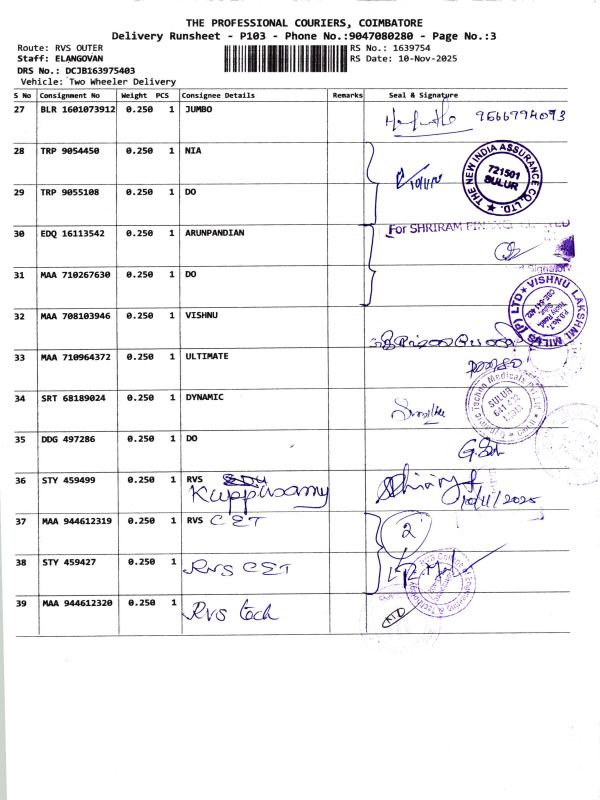 THE PROFESSIONAL COURIERS, COIMBATORE
Delivery Runsheet - P103 - Phone No.:9047080280 - Page No.:3
Route: RVS OUTER
RS No.: 1639754
Staff: ELANGOVAN
RS Date: 10-Nov-2025
DRS No.: DCJB163975403
Vehicle: Two Wheeler Delivery
S No Consignment No Weight PCS Consignee Details Remarks Seal & Signature
27 BLR 1601073912 0.250 1 JUMBO 9566794093
28 TRP 9054450 0.250 1 NIA 10/11/25
THE NEW INDIA ASSURANCE CO. LTD.
721501
SULUR
29 TRP 9055108 0.250 1 DO
30 EDQ 16113542 0.250 1 ARUNPANDIAN
For SHRIRAM FINANCE LIMITED
31 MAA 710267630 0.250 1 DO
32 MAA 708103946 0.250 1 VISHNU
VISHNU LAKSHMI MILLS (P) LTD
33 MAA 710964372 0.250 1 ULTIMATE
34 SRT 68189024 0.250 1 DYNAMIC
Dynamic Techno Medicals Pvt Ltd
SULUR
641 402
35 DDG 497286 0.250 1 DO
36 STY 459499 0.250 1 RVS
Kuppusamy
10/11/2025
37 MAA 944612319 0.250 1 RVS CET
2
38 STY 459427 0.250 1 RVS CET
RVS College of Engineering & Technology
39 MAA 944612320 0.250 1 RVS tech